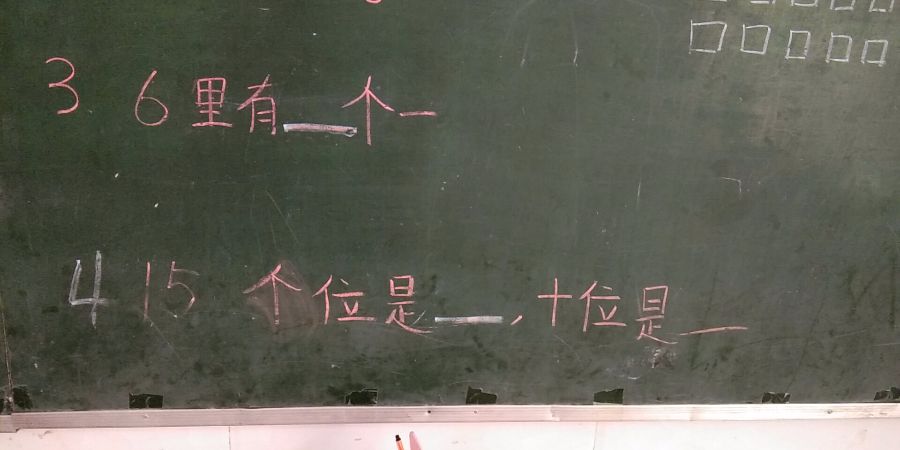 3 6里有__个一
4 15 个位是__,十位是__